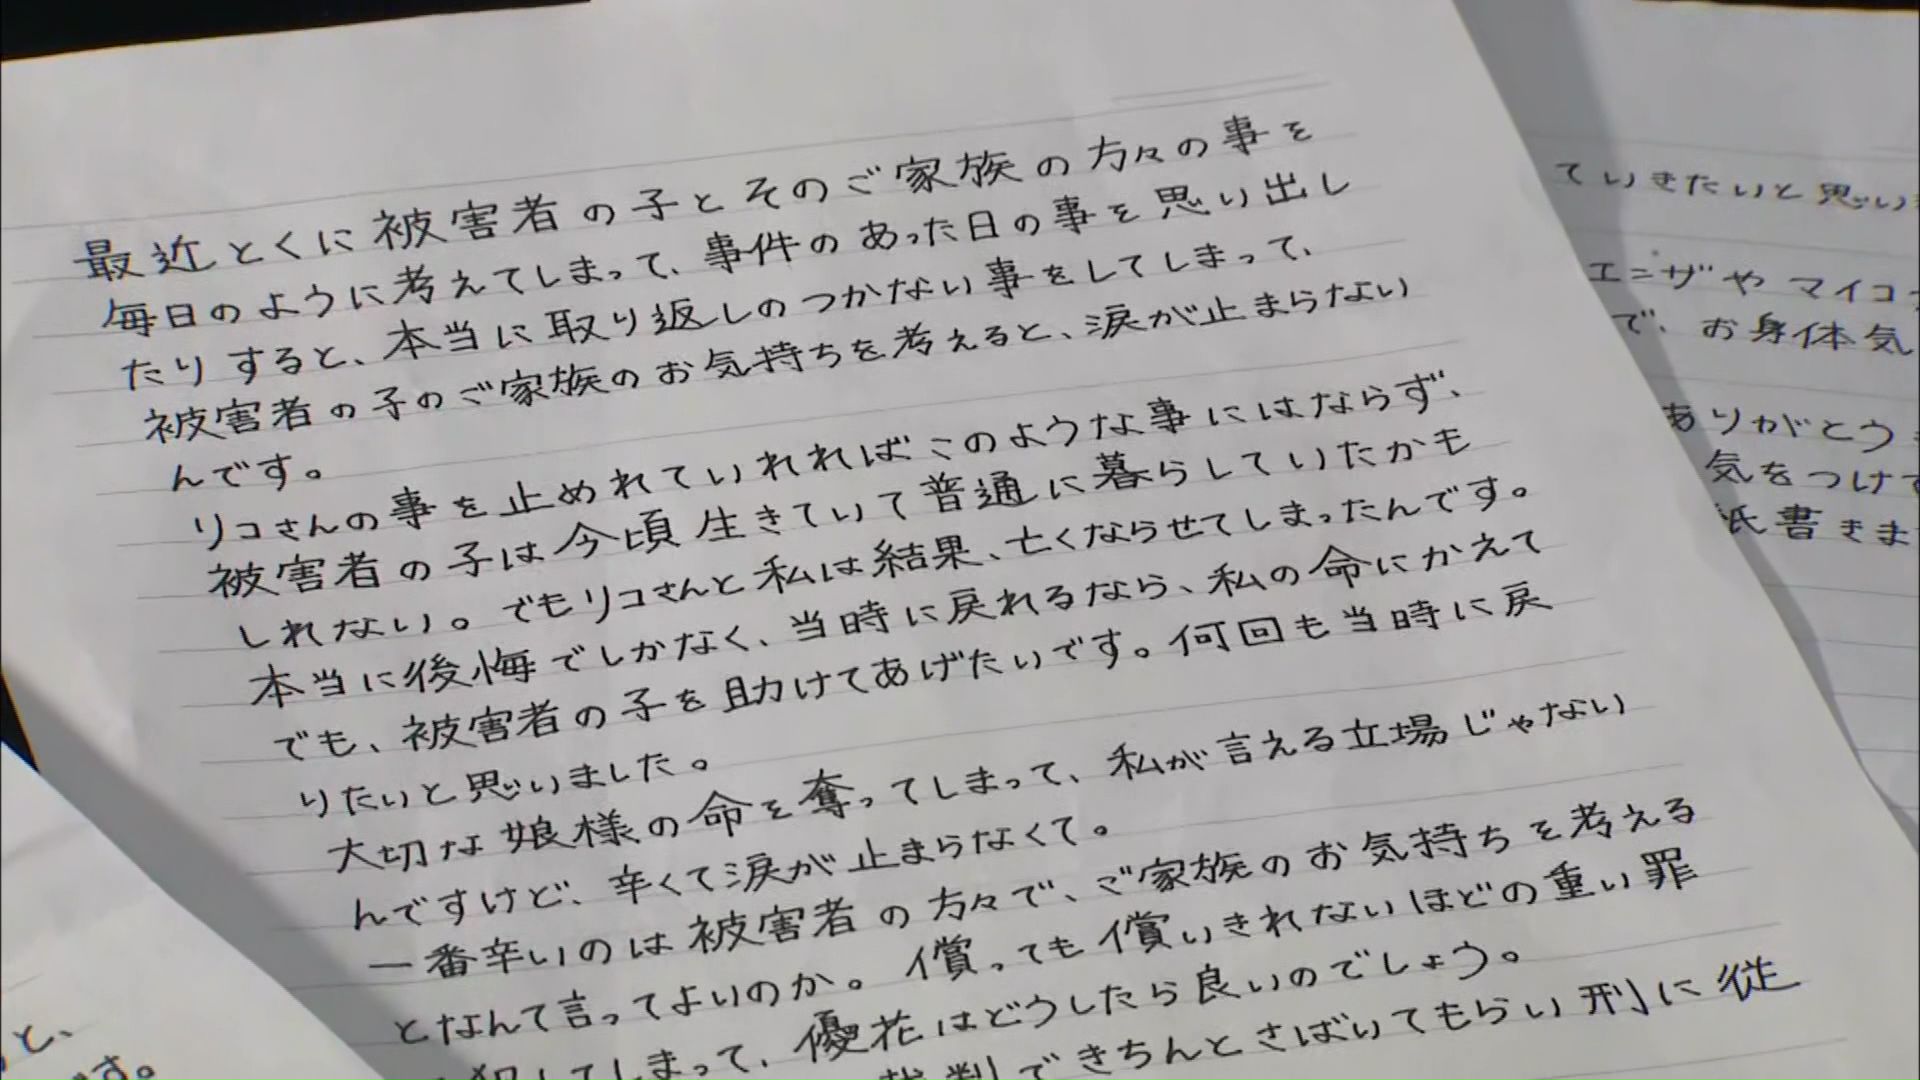 最近とくに被害者の子とそのご家族の方々の事を
毎日のように考えてしまって、事件のあった日の事を思い出し
たりすると、本当に取り返しのつかない事をしてしまって、
被害者の子のご家族のお気持ちを考えると、涙が止まらない
んです。
リコさんの事を止めれていれればこのような事にはならず、
被害者の子は今頃生きていて普通に暮らしていたかも
しれない。でもリコさんと私は結果、亡くならせてしまったんです。
本当に後悔でしかなく、当時に戻れるなら、私の命にかえて
でも、被害者の子を助けてあげたいです。何回も当時に戻
りたいと思いました。
大切な娘様の命を奪ってしまって、私が言える立場じゃない
んですけど、辛くて涙が止まらなくて。
一番辛いのは被害者の方々で、ご家族のお気持ちを考える
となんて言ってよいのか。償っても償いきれないほどの重い罪
犯してしまって、優花はどうしたら良いのでしょう。
裁判できちんとさばいてもらい刑に従
ていきたいと思い
エニザやマイコ
で、お身体気
ありがとう
気をつけて
紙書きま
と、
す。